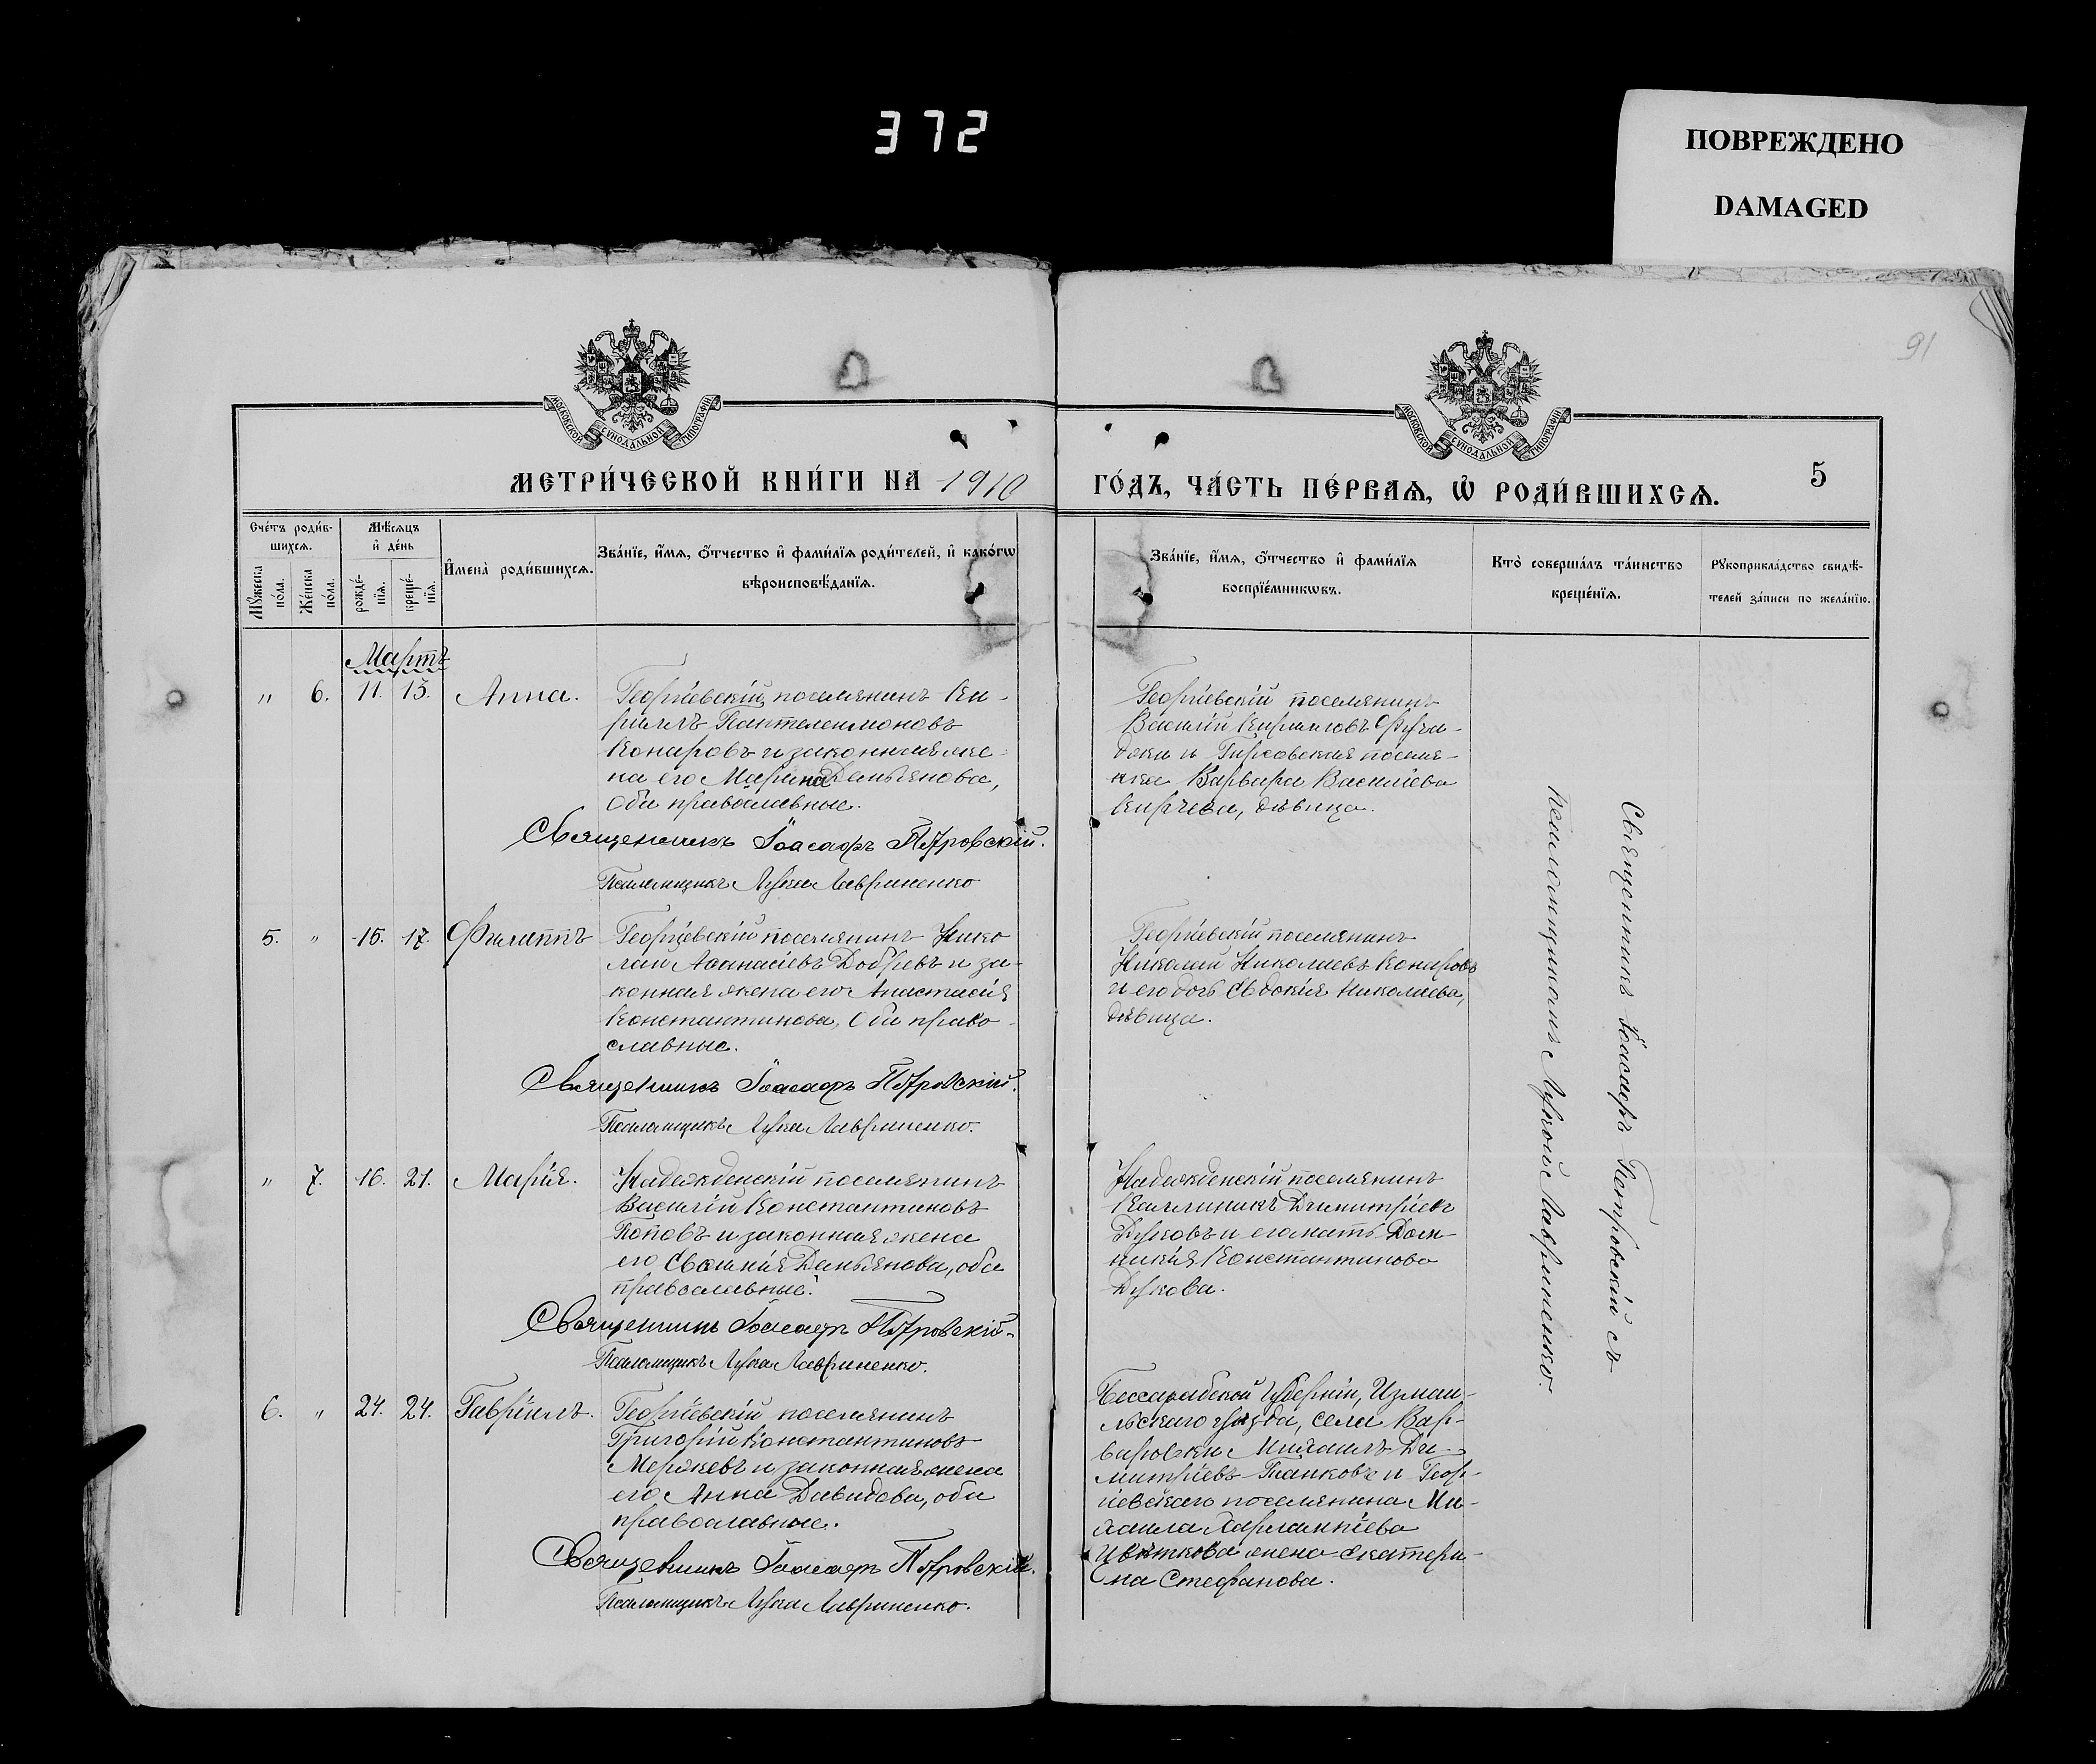 372
ПОВРЕЖДЕНО
DAMAGED
91
МОСКОВСКОЙ СѴНОДАЛЬНОЙ ТИПОГРАФІИ
МОСКОВСКОЙ СѴНОДАЛЬНОЙ ТИПОГРАФІИ
МЕТРИ́ЧЕСКОЙ КНИ́ГИ НА 1910
ГО́ДЪ, ЧА́СТЬ ПЕ́РВАѦ, Ѡ҆ РОДИ́ВШИХСѦ.
5
Сче́тъ роди́в-
шихсѧ.
Мꙋ́жеска по́ла.
Же́нска по́ла.
Мѣ́сѧцъ
и҆ де́нь
рожде́-
нїѧ.
креще́-
нїѧ.
И҆мена̀ роди́вшихсѧ.
Зва́нїе, и҆́мѧ, ѻ҆́тчество и҆ фами́лїѧ роди́телей, и҆ како́гѡ
вѣроисповѣ́данїѧ.
Зва́нїе, и҆́мѧ, ѻ҆́тчество и҆ фами́лїѧ
воспрїе́мникѡвъ.
Кто̀ соверша́лъ та́инство
креще́нїѧ.
Рꙋкоприкла́дство свидѣ́-
телей за́писи по жела́нїю.
Мартъ
" 6. 11. 13. Анна.
Георгіевскій поселянинъ Ки-
риллъ Пантелеимоновъ
Конаровъ и законная же-
на его Марина Демьянова,
оба православные.
Священникъ Іоасафъ Петровскій.
Псаломщикъ Лука Лавриненко
Георгіевскій поселянинъ
Василій Кирилловъ
и Гирсовская поселя-
нка Варвара Васильева
Кирчева, дѣвица.
5. " 15. 17. Филиппъ
Георгіевскій поселянинъ Нико
лай Аѳанасіевъ Добревъ и за-
конная жена его Анастасія
Константинова, оба право-
славные.
Священникъ Іоасафъ Петровскій.
Псаломщикъ Лука Лавриненко.
Георгіевскій поселянинъ
Николай Николаевъ Конаровъ
и его дочь Евдокія Николаева,
дѣвица.
" 7. 16. 21. Марія.
Надежденскій поселянинъ
Василій Константиновъ
Поповъ и законная жена
его Демьянова, оба
православные.
Священникъ Іоасафъ Петровскій.
Псаломщикъ Лука Лавриненко.
Надежденскій поселянинъ
Каллиникъ Димитріевъ
Дуковъ и его мать Дом-
никія Константинова
Дукова.
6. " 24. 24. Гавріилъ.
Георгіевскій поселянинъ
Григорій Константиновъ
Мержевъ и законная жена
его Анна Давидова, оба
православные.
Священникъ Іоасафъ Петровскій.
Псаломщикъ Лука Лавриненко.
Бессарабской губерніи, Измаи-
льскаго уѣзда, села Вар-
варовки Михаилъ Ди-
митріевъ Танковъ и Геор-
гіевскаго поселянина Ми-
хаила Харлампіева
Цвѣткова жена Екатери-
на Стефанова.
Священникъ Іоасафъ Петровскій съ
псаломщикомъ Лукою Лавриненко.